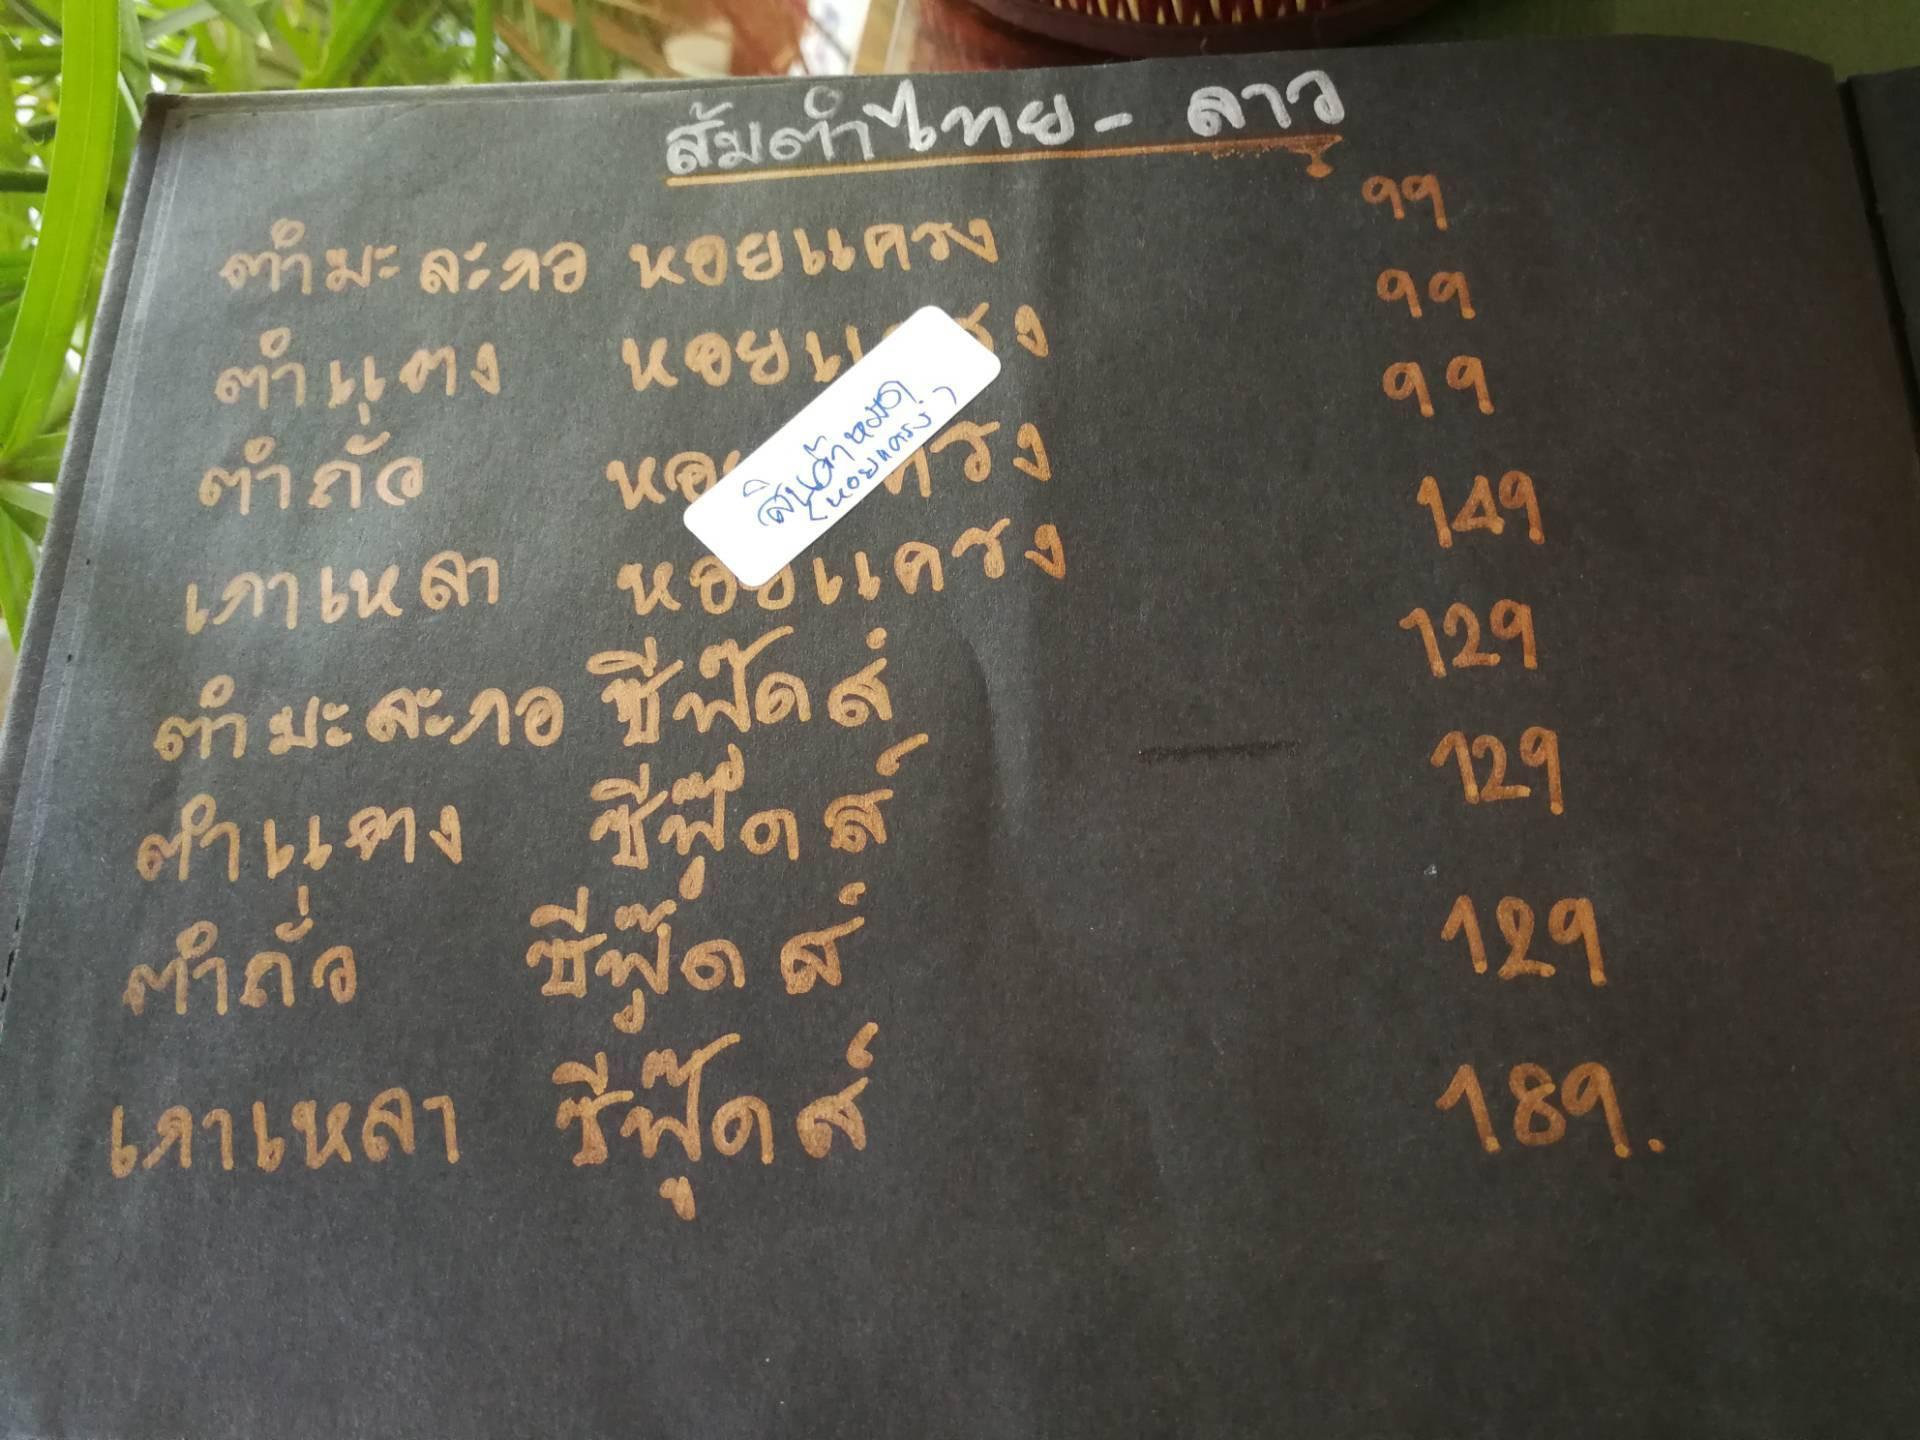 ส้มตำไทย - ลาว
ตำมะละกอ หอยแครง 99
ตำแตง หอยแครง 99
ตำถั่ว หอยแครง 99
เกาเหลา หอยแครง 149
ตำมะละกอ ซีฟู๊ดส์ 129
ตำแตง ซีฟู๊ดส์ 129
ตำถั่ว ซีฟู๊ดส์ 129
เกาเหลา ซีฟู๊ดส์ 189.
สินค้าหมด
(หอยแครง)